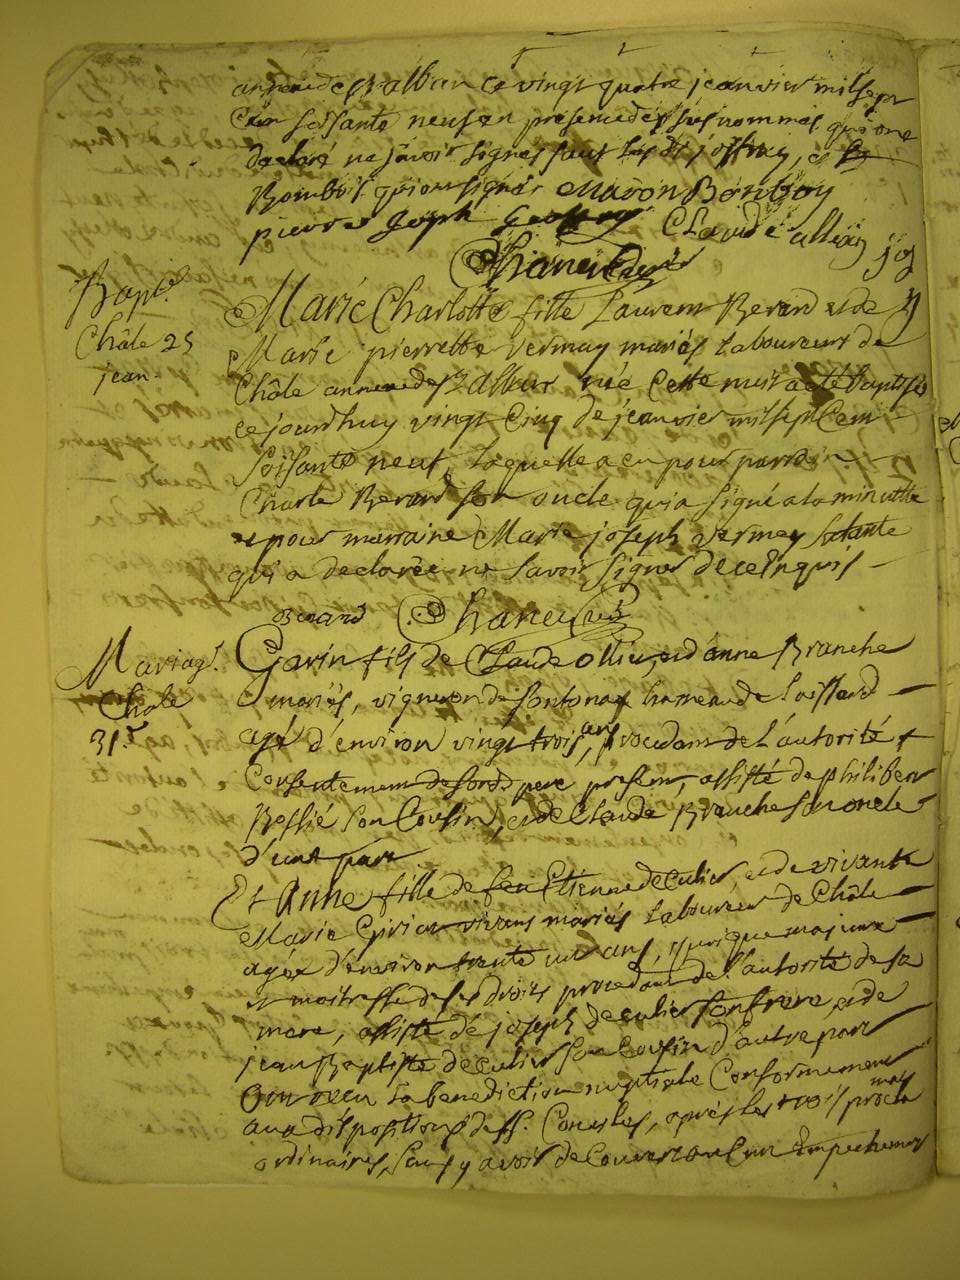 annexe de St alban ce vingt quatre jeanvier mil sept
Cent soissante neuf en presence des susnommés qui ont
declaré ne sçavoir signer sauf lesdts joffray, et
Bomboy qui ont signés Mador Bonboy
pierre Joseph Geoffray Claude allix joz
Chanei Curé
Bapt.
Châle 25
jean.
Marie Charlotte fille Laurent Berard et de
Marie pierrette Vermay mariés Laboureur de
Châle annexe de St Alban née cette nuit a eté baptisée
ce jourdhuy vingt cinq de jeanvier mil sept Cent
soissante neuf, laquelle a eu pour parrain
Charle Berard son oncle qui a signé a la minutte
et pour marraine Marie joseph Vermey sa tante
qui a declarée ne savoir signer de ce enquis
Berard Chanei Curé
Mariag.
Châle
31.
Gavin fils de Claude ollier, et d'anne Branche
mariés, vigneron de fontonay hameau de
agé d'environ vingt trois ans, procedant de l'autorité et
Consentement de sondt pere present, assisté de philibert
Bessié son Cousin, et de Claude Branche son oncle
d'une part
Et Anne fille de feu Etienne decullier et de vivante
Marie vivans mariés Laboureur de Châle
agée d'environ trente un ans, quoique majeure
et maitresse de ses droits procedant de l'autorité de sa
mere, assisté de joseph decullier son frere et de
jean Baptiste decullier son Cousin d'autre part
Ont recu la benediction nuptiale Conformement
aux dispositions des Sts. Conciles, après les trois proclamas
ordinaires, sans y avoir decouvert aucun Empechement